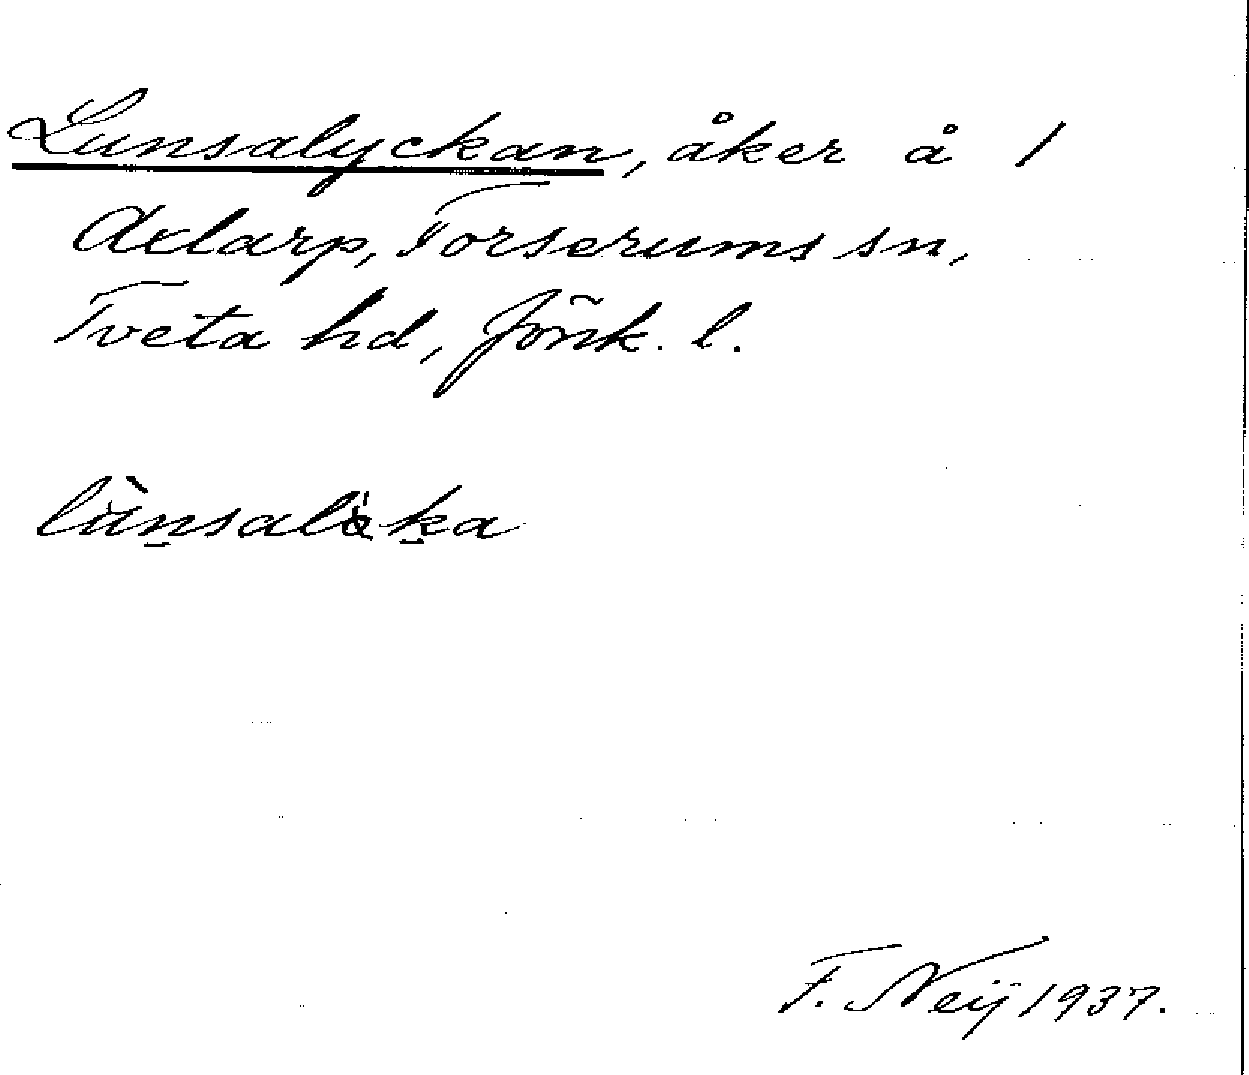 Lunsalyckan, åker å 1
Axlarp, Forserums sn,
Tveta hd, Jönk. l.
lùn̠salö̀k̠a
F. Neij 1937.